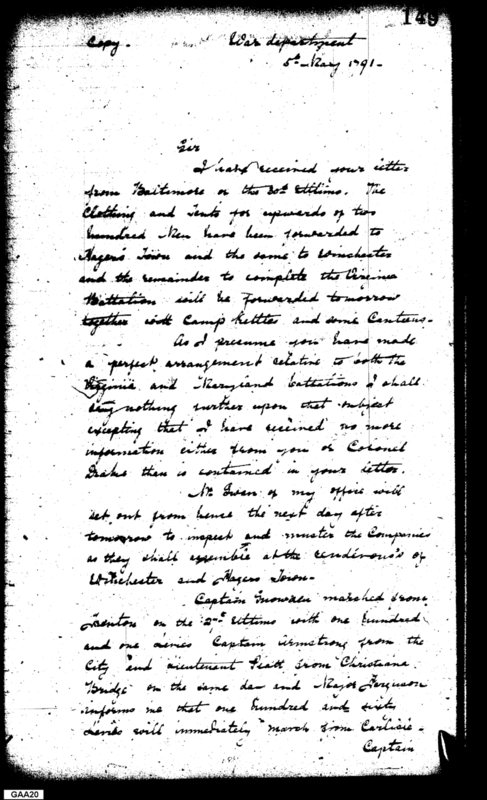 149
Copy. War department
5th May 1791-
Sir
I have received your letter
from Baltimore of the 30th Ultimo. The
Clothing and Tents for upwards of two
hundred Men have been forwarded to
Hagers Town and the same to Winchester
and the remainder to complete the Virginia
Battalion will be forwarded tomorrow
together with Camp Kettles and some Canteens-
As I presume you have made
a perfect arrangement relative to both the
Virginia and Maryland battalions I shall
say nothing further upon that subject
excepting that I have received no more
information either from you or Colonel
Drake than is contained in your letter.
Mr. Swan of my office will
set out from hence the next day after
tomorrow to inspect and muster the Companies
as they shall assemble at the rendezvous's of
Winchester and Hagers Town-
Captain Snowden marched from
Trenton on the 2nd Ultimo with one hundred
and one Levies Captain Armstrong from the
City and Lieutenant Platt from Christiana
Bridge on the same day and Major Ferguson
informs me that one hundred and sixty
Levies will immediately march from Carlisle-
Captain
GAA20